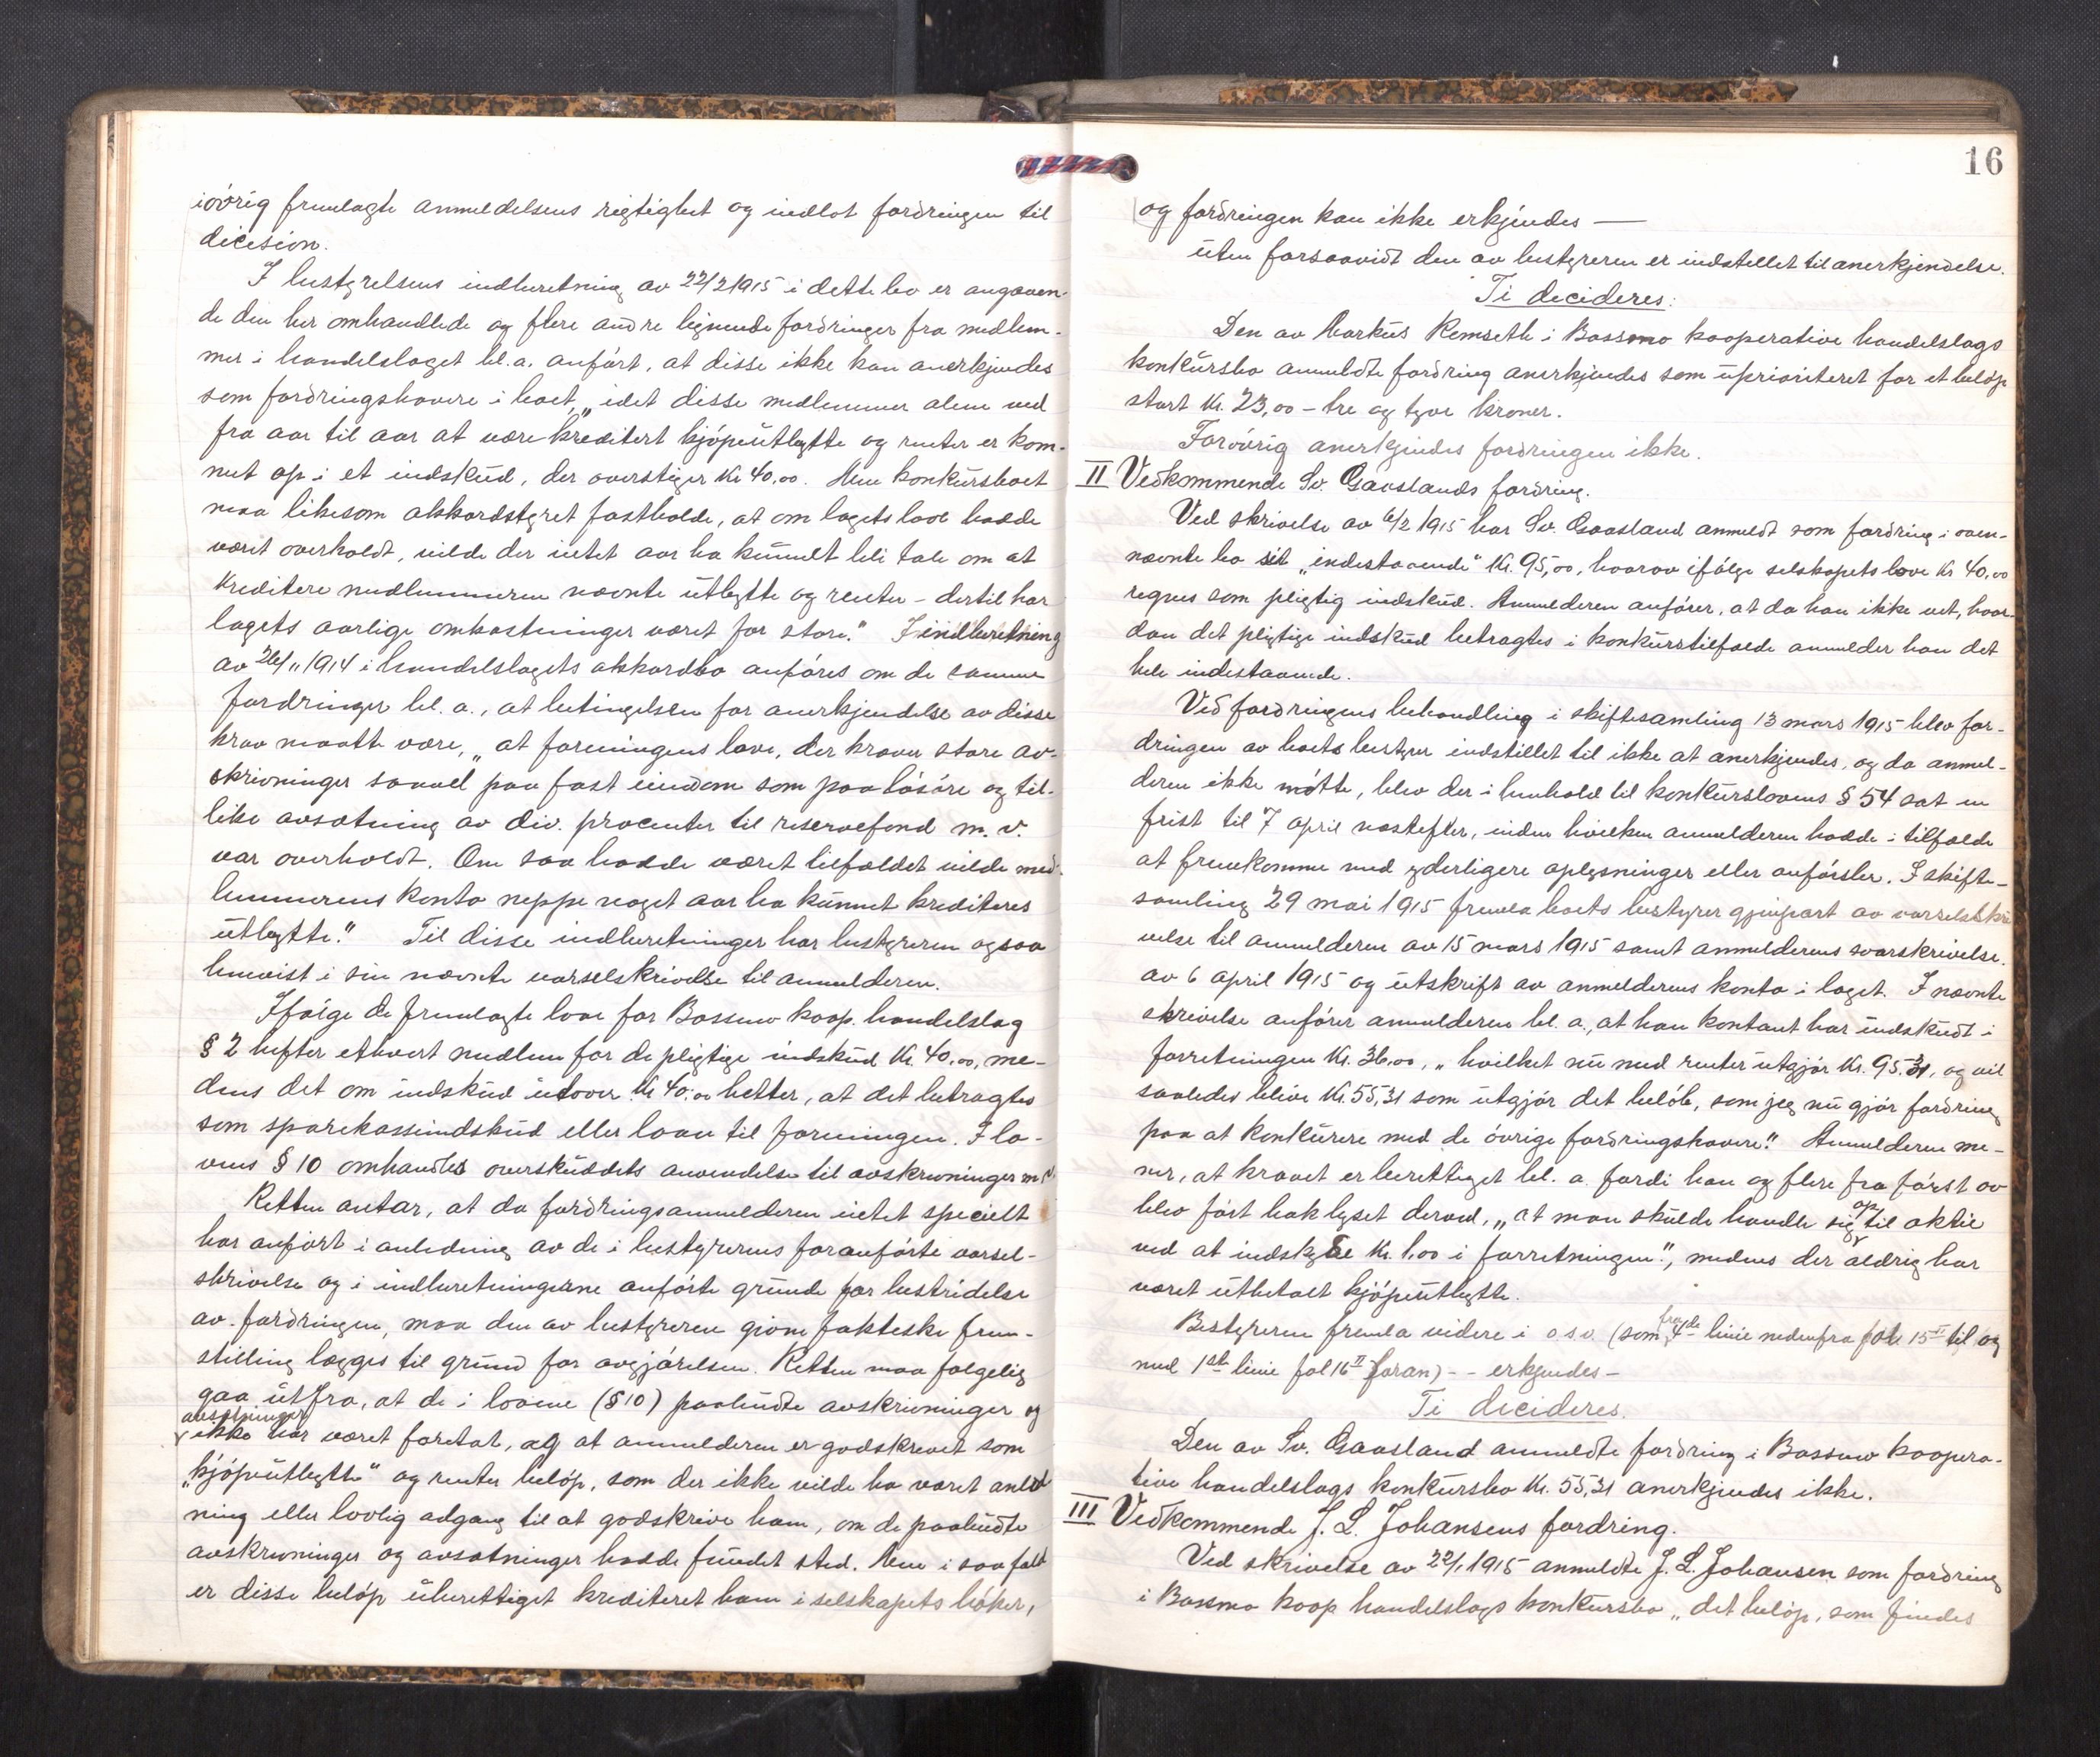 iövrig fremlagte anmeldelsens rigtighet og indlot fordringen til
dicision.
I bestyrelsens indberetning av 22/2 1915 i dette bo er angaaen-
de den her omhandlede og flere andre lignende fordringer fra medlem-
mer i handelslaget bl. a. anført, at disse ikke kan anerkjendes
som fordringshavere i boet, „idet disse medlemmer alene ved
fra aar til aar at være kreditert kjøpeutbytte og renter er kom-
met op i et indskud, der overstiger Kr 40,00. Men konkursboet
maa likesom akkordstyret fastholde, at om lagets love hadde
været overholdt, vilde der intet aar ha kunnet bli tale om at
kreditere medlemmerne nævnte utbytte og renter – dertil har
lagets aarlige omkostninger været for store." I indberetning
av 26/11 1914 i handelslagets akkordbo anføres om de samme
fordringer bl. a., at betingelsen for anerkjendelse av disse
krav maatte være, „at foreningens love, der kræver store av-
skrivninger saavel paa fast eiendom som paa løsøre og til-
like avsætning av div. procenter til reservefond m. v.
var overholdt. Om saa hadde været tilfældet vilde med-
lemmerens konto neppe noget aar ha kunnet krediteres
utbytte." Til disse indberetninger har bestyreren ogsaa
henvist i sin nævnte varselskrivelse til anmelderen.
Ifølge de fremlagte love for Bossmo koop. handelslag
§ 2 hefter ethvert medlem for de pligtige indskud Kr. 40,00, me-
dens det om indskud utover Kr 40.00 hetter, at det betragtes
som sparekasseindskud eller laan til foreningen. I lo-
vens § 10 omhandles overskuddets anvendelse til avskrivninger m.v.
Retten antar, at da fordringsanmelderen intet specielt
har anført i anledning av de i bestyrerens foranførte varsel-
skrivelse og i indberetningerne anførte grunde for bestridelse
av fordringen, maa den av bestyreren givne faktiske frem-
stilling lægges til grund for avgjørelsen. Retten maa følgelig
gaa ut fra, at de i lovene (§ 10) paabudte avskrivninger og
avsætninger
ikke har været foretat, og at anmelderen er godskrevet som
„kjøpeutbytte" og renter beløp, som der ikke vilde ha været anled
ning eller lovlig adgang til at godskrive ham, om de paabudte
avskrivninger og avsætninger hadde fundet sted. Men i saa fald
er disse beløp uberettiget krediteret ham i selskapets bøker,
16
og fordringen kan ikke erkjendes —
uten forsaavidt den av bestyreren er indstillet til anerkjendelse.
Ti decideres:
Den av Markus Remseth i Bossmo kooperative handelslags
konkursbo anmeldte fordring anerkjendes som uprioriteret for et beløp
stort Kr. 23,00 – tre og tyve kroner.
Forøvrig anerkjendes fordringen ikke.
II Vedkommende Sv. Gaaslands fordring.
Ved skrivelse av 6/2 1915 har Sv. Gaasland anmeldt som fordring i oven-
nævnte bo sit „indestaaende" Kr. 95,00, hvorav ifølge selskapets love Kr 40.00
regnes som pligtig indskud. Anmelderen anfører, at da han ikke vet, hvor-
dan det pligtige indskud betragtes i konkurstilfælde anmelder han det
hele indestaaende.
Ved fordringens behandling i skiftesamling 13 mars 1915 blev for-
dringen av boets bestyrer indstillet til ikke at anerkjendes, og da anmel-
deren ikke møtte, blev der i henhold til konkurslovens § 54 sat en
frist til 7 april næstefter, inden hvilken anmelderen hadde i tilfælde
at fremkomme med yderligere oplysninger eller anførsler. I skifte-
samling 29 mai 1915 fremla boets bestyrer gjenpart av varselskri
velse til anmelderen av 15 mars 1915 samt anmelderens svarskrivelse
av 6 april 1915 og utskrift av anmelderens konto i laget. I nævnte
skrivelse anfører anmelderen bl. a., at han kontant har indskudt i
forretningen Kr. 36.00, „hvilket nu med renter utgjør Kr. 95.31, og vil
saaledes blive Kr. 55,31 som utgjør det beløb, som jeg nu gjør fordring
paa at konkurere med de øvrige fordringshavere." Anmelderen me-
ner, at kravet er berettiget bl. a. fordi han og flere fra først av
blev ført bak lyset derved, „at man skulde handle sig op til aktie
ved at indskyde Kr. 1.00 i forretningen", medens der aldrig har
været utbetalt kjøpeutbytte.
Bestyreren fremla videre i o.s.v. (som fra 4de linie nedenfra fol. 15 II til og
med 1ste linie fol 16 II foran) – – erkjendes –
Ti decideres.
Den av Sv. Gaasland anmeldte fordring i Bossmo koopera-
tive handelslags konkursbo Kr. 55,31 anerkjendes ikke.
III Vedkommende J. L. Johansens fordring.
Ved skrivelse av 22/1 1915 anmeldte J. L. Johansen som fordring
i Bossmo koop handelslags konkursbo „det beløp, som findes